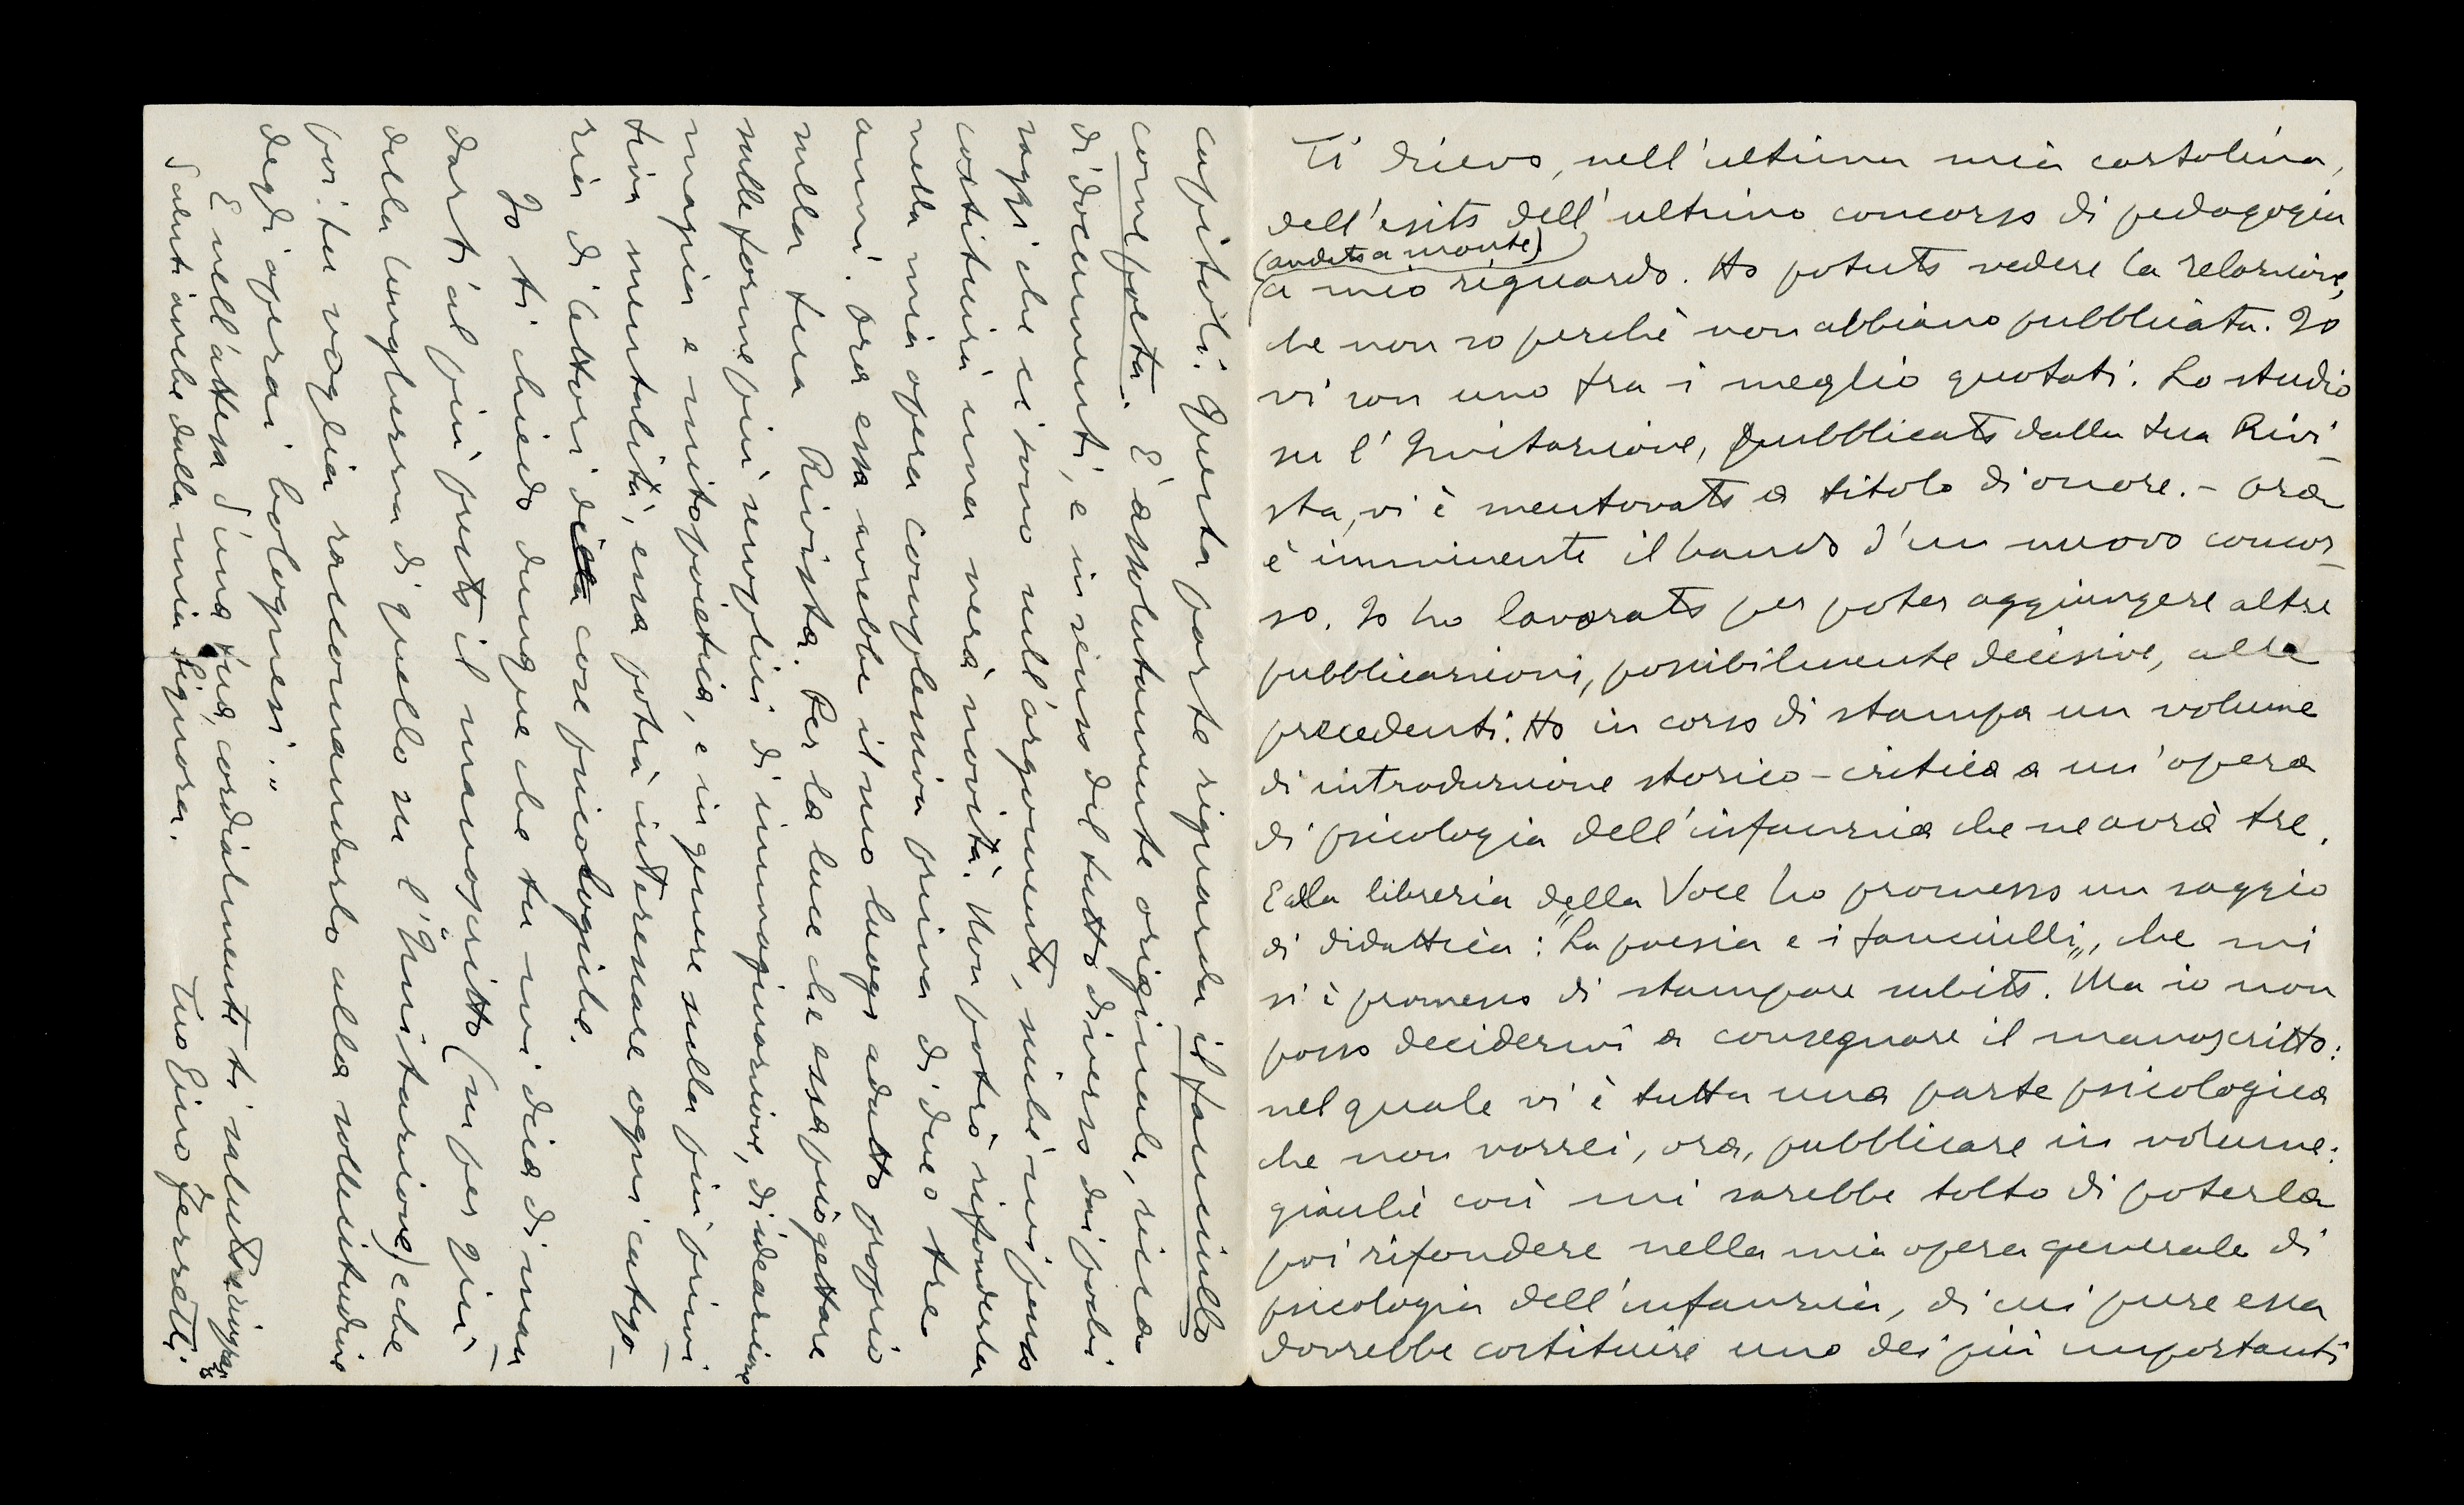 Ti dicevo, nell'ultima mia cartolina,
dell'esito dell'ultimo concorso di pedagogia
(andato a monte)
a mio riguardo. Ho potuto vedere la relazione,
che non so perchè non abbiano pubblicata. Io
vi son uno fra i meglio quotati. Lo studio
su l'Imitazione, pubblicato dalla tua Rivi-
sta, vi è mentovato a titolo di onore. - Ora
è imminente il bando d'un nuovo concor-
so. Io ho lavorato per poter aggiungere altre
pubblicazioni, possibilmente decisive, alle
precedenti. Ho in corso di stampa un volume
di introduzione storico-critica a un'opera
di psicologia dell'infanzia che ne avrà tre.
E alla libreria della Voce ho promesso un saggio
di didattica: "La poesia e i fanciulli", che mi
si è promesso di stampare subito. Ma io non
posso decidermi a consegnare il manoscritto:
nel quale vi è tutta una parte psicologica
che non vorrei, ora, pubblicare in volume:
giacchè così mi sarebbe tolto di poterla
poi rifondere nella mia opera generale di
psicologia dell'infanzia, di cui pure essa
dovrebbe costituire uno dei più importanti
capitoli. Questa parte riguarda il fanciullo
come poeta. È assolutamente originale, ricca
di documenti, e in senso del tutto diverso dai pochi
saggi che ci sono nell'argomento, sicchè mi penso
costituirà una vera novità. Non potrò rifonderla
nella mia opera complessiva prima di due o tre
anni. Ora essa avrebbe il suo luogo adatto proprio
nella tua Rivista. Per la luce che essa può gettare
sulle forme più semplici di immaginazione, di ideazione
magica e mitopoietica, e in genere sulla più primi-
tiva mentalità, essa potrà interessare ogni catego-
ria di lettori di cose psicologiche.
Io ti chiedo dunque che tu mi dica di man-
darti al più presto il manoscritto (un po' più
della lunghezza di quello su l'"Imitazione) e che
poi tu voglia raccomandarlo alla sollecitudine
degli operai bolognesi."
E nell'attesa d'una tua, cordialmente ti saluto,
Saluti anche dalla mia Signora.
Tuo Gino Ferretti.